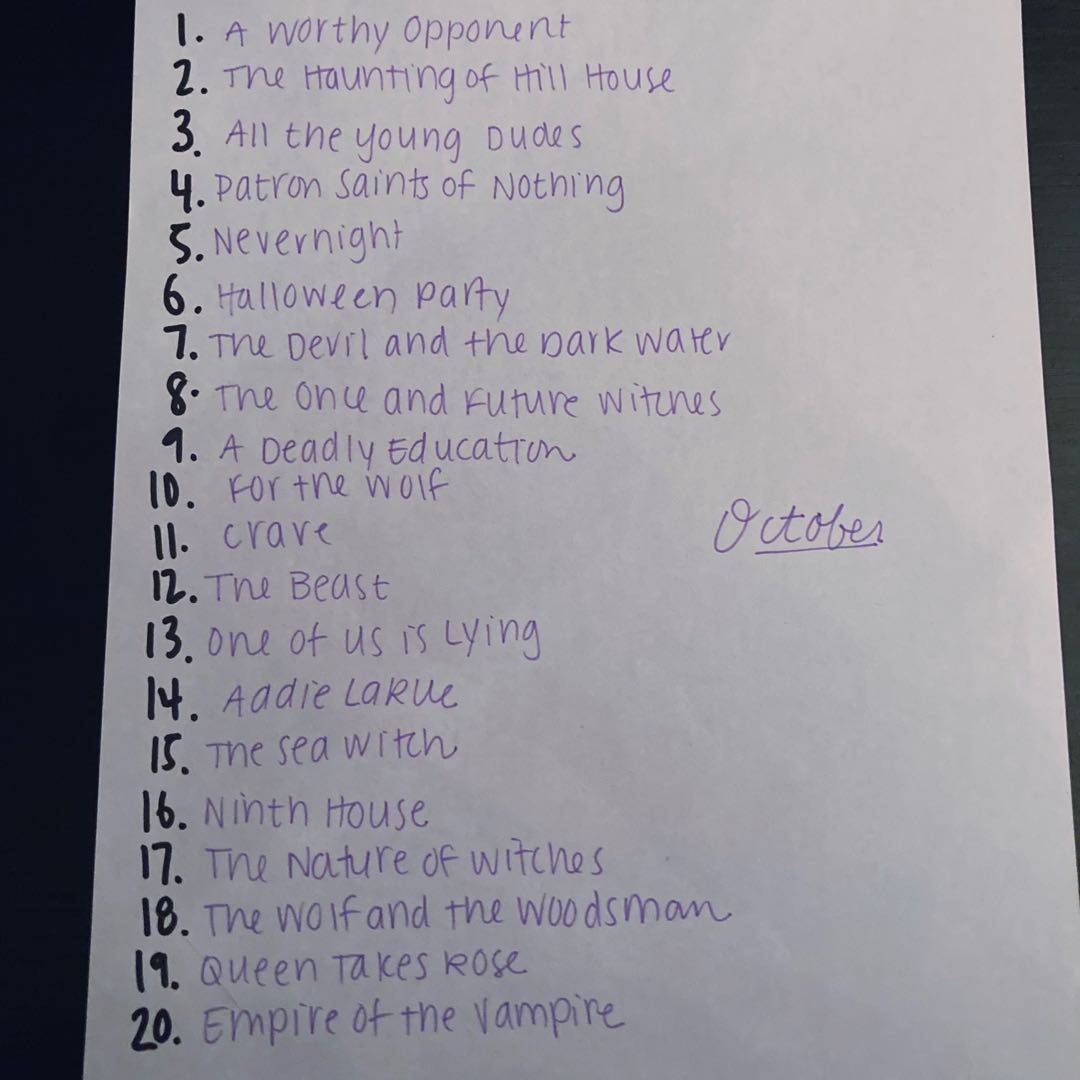 1. A Worthy Opponent
2. The Haunting of Hill House
3. All the young Dudes
4. Patron Saints of Nothing
5. Nevernight
6. Halloween Party
7. The Devil and the Dark Water
8. The Once and Future Witches
9. A Deadly Education
10. For the Wolf
11. Crave
October
12. The Beast
13. One of us is Lying
14. Addie LaRue
15. The Sea Witch
16. Ninth House
17. The Nature of Witches
18. The Wolf and the Woodsman
19. Queen Takes Rose
20. Empire of the Vampire